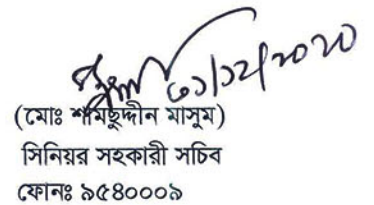 ৩১/১২/২০২০
(মোঃ শামছুদ্দীন মাসুম)
সিনিয়র সহকারী সচিব
ফোনঃ ৯৫৪০০০৯